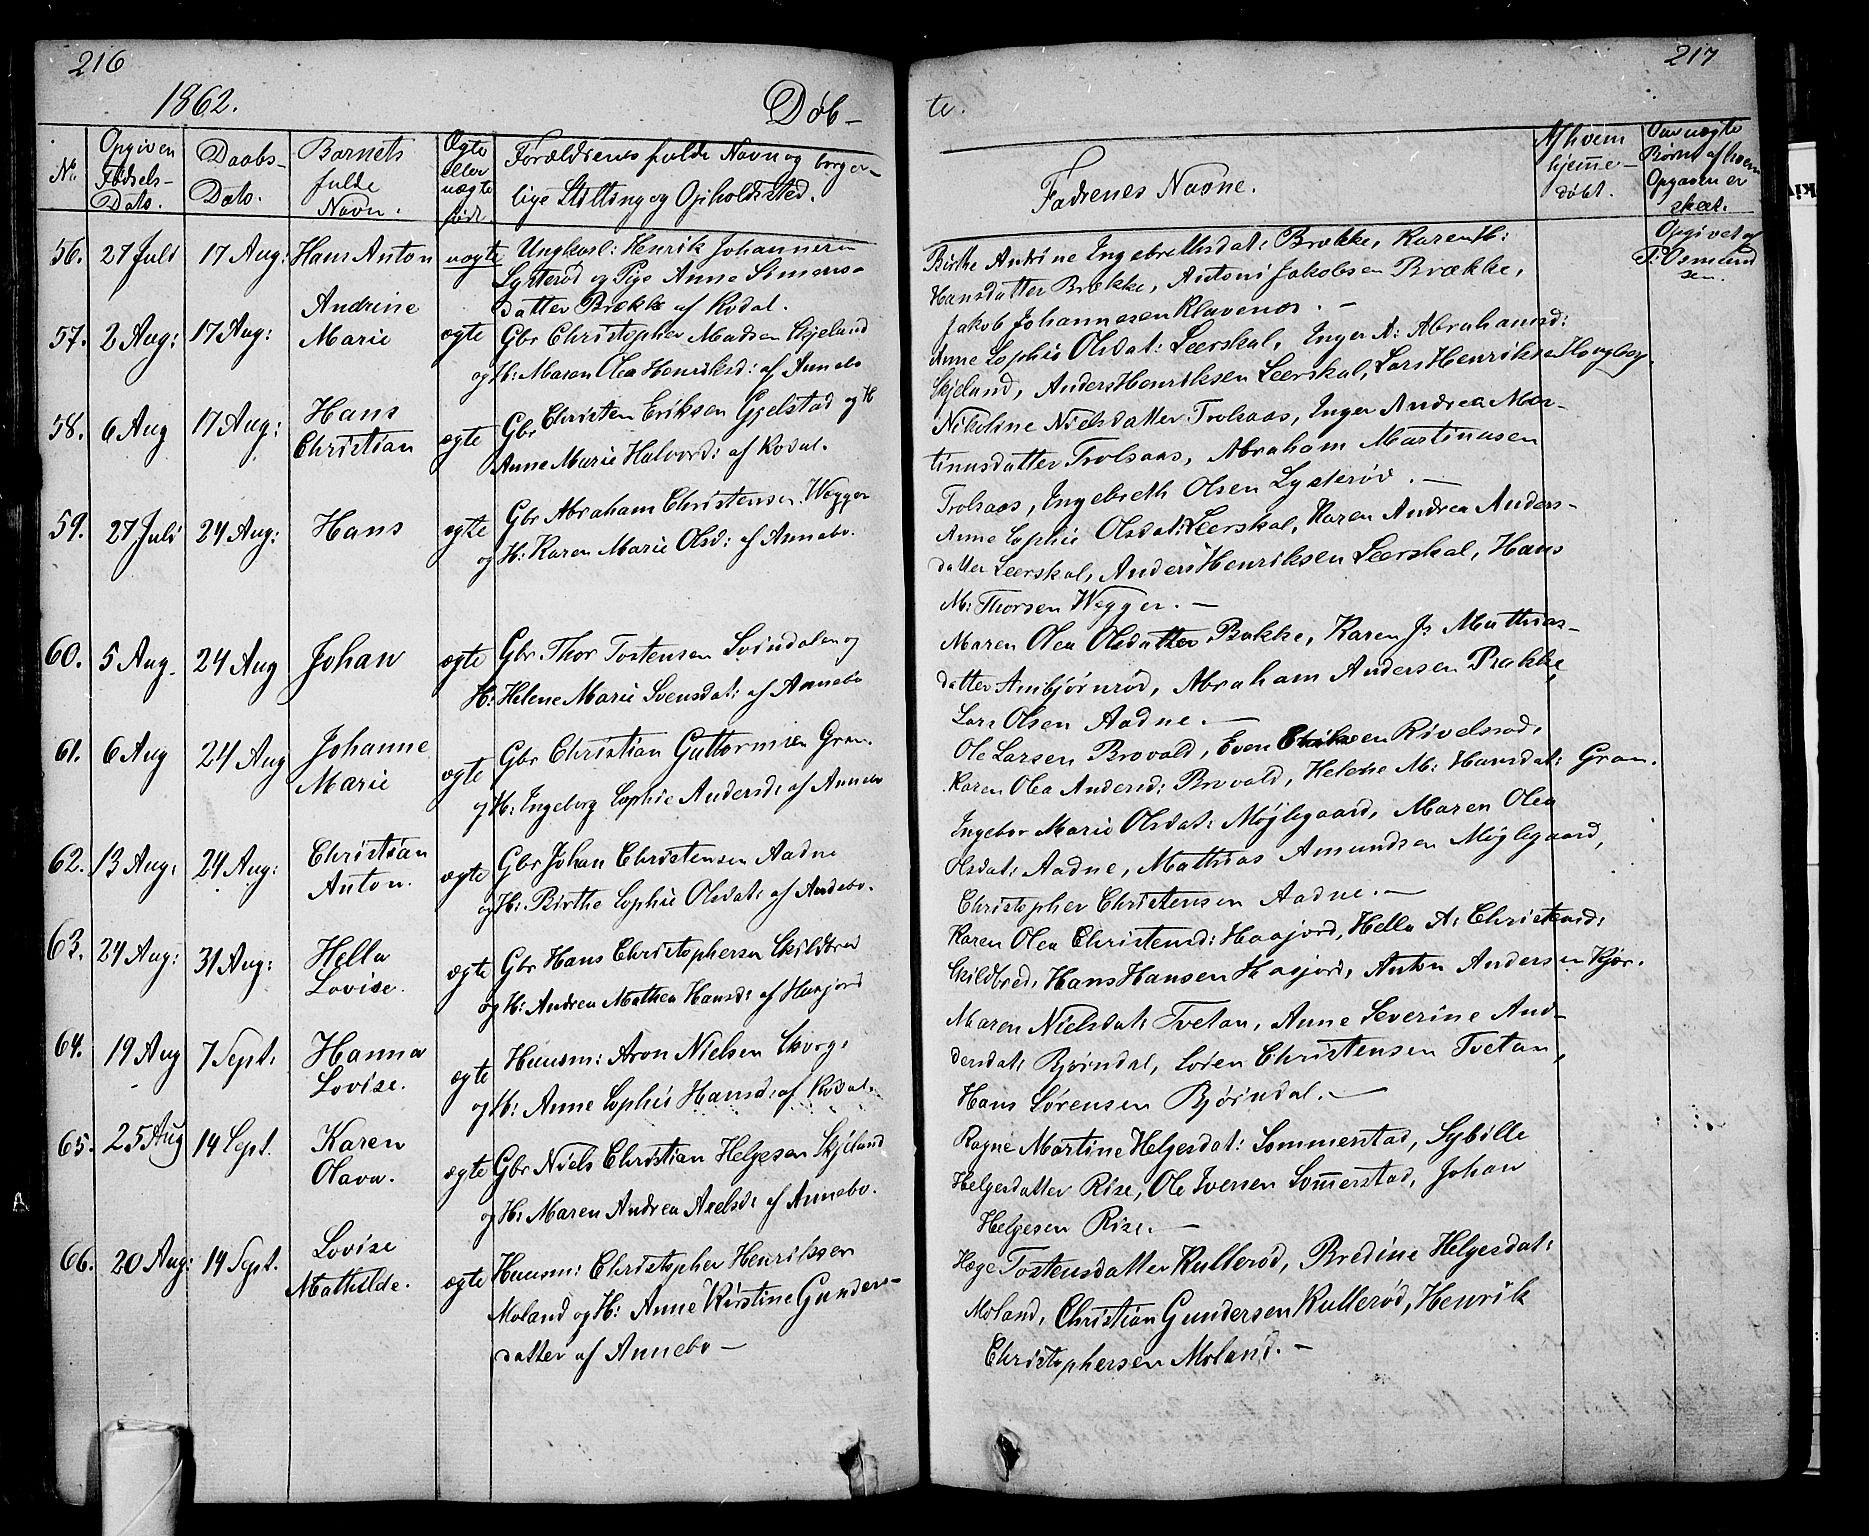 216
1862.
Døb-
No.
Opgiven
Fødsels-
Dato.
Daabs-
Dato.
Barnets
fulde
Navn.
Ægte
eller
uægte
født.
Forældrenes fulde Navn og borger-
lige Stilling og Opholdssted.
56. 27 Juli 17 Aug: Hans Anton uægte Ungkarl: Henrik Johannesen
Lysterød og Pige Anne Simens-
datter Brække af Kodal.
57. 2 Aug: 17 Aug: Andrine
Marie ægte Gbr Christopher Madsen Skjeland
og H: Maren Olea Henriksd: af Annebo
58. 6 Aug 17 Aug: Hans
Christian ægte Gbr Christen Eriksen Gjelstad og H
Anne Marie Halvord: af Kodal.
59. 27 Juli 24 Aug: Hans ægte Gbr Abraham Christensen Wegger
og H: Karen Marie Olsd: af Annebo.
60. 5 Aug. 24 Aug Johan ægte Gbr Thor Tostensen Svindalen og
H: Helene Marie Svensdat: af Annebo
61. 6 Aug 24 Aug Johanne
Marie ægte Gbr Christian Guttormsen Gran
og H: Ingeborg Sophie Andersd: af Annebo
62. 13 Aug: 24 Aug: Christian
Anton. ægte Gbr Johan Christensen Aadne
og H: Birthe Sophie Olsdat: af Andebo.
63. 24 Aug: 31 Aug: Hella
Lovise. ægte Gbr Hans Christophersen Skildbred
og H: Andrea Mathea Hansd: af Haasjord
64. 19 Aug 7 Sept: Hanna
Lovise. ægte Huusm: Aron Nielsen Skorge
og H: Anne Sophie Hansd: af Kodal.
65. 25 Aug 14 Sept. Karen
Olava. ægte Gbr Niels Christian Helgesen Skjeland
og H: Maren Andrea Axelsd: af Annebo.
66. 20 Aug: 14 Sept. Lovise
Mathilde. ægte Huusm: Christopher Henriksen
Moland og H: Anne Kirstine Gunders-
datter af Annebo-
217
te.
Fadrenes Navne.
Af hvem
hjemme-
døbt.
Om uægte
Børns af hvem
Opgaven er
skeet.
Birthe Andrine Ingebrethsdat: Brække, Karen H:
Hansdatter Brække, Antoni Jakobsen Brække,
Jakob Johannesen Klavenes. -
Opgivet af
sen.
Anne Sophie Olsdat: Leerskal, Inger A: Abrahamsd:
Skjeland, Anders Henriksen Leerskal, Lars Henriksen
Nikoline Nielsdatter Trolsaas, Inger Andrea Mar-
tinusdatter Trolsaas, Abraham Martinusen
Trolsaas, Ingebreth Olsen Lysterød. -
Anne Sophie Olsdat: Leerskal, Karen Andrea Anders-
datter Leerskal, Anders Henriksen Leerskal, Hans
M: Thorsen Wegger. -
Maren Olea Olsdatter Bakke, Karen J: Mathias-
datter Ambjørnrød, Abraham Andersen Bakke,
Lars Olsen Aadne. -
Ole Larsen Brovald, Even Eriksen Rivelsrød,
Karen Olea Andersd: Brovald, Helene M: Hansdat: Gran.
Ingebor Marie Olsdat: Møjlegaard, Maren Olea
Olsdat: Aadne, Mathias Amundsen Møglegaard,
Christopher Christensen Aadne. -
Karen Olea Christensd: Haasjord, Hella A: Christensd:
Skildbred, Hans Hansen Haasjord, Anton Andersen Kjær.
Maren Nielsdat: Tvetan, Anne Severine An-
dersdat: Bjørndal, Søren Christensen Tvetan,
Hans Sørensen Bjørndal. -
Ragne Martine Helgesdat: Sommerstad, Sybille
Helgesdatter Rise, Ole Iversen Somerstad, Johan
Helgesen Rise. -
Hæge Tostensdatter Kullerød, Bredine Helgesdat:
Moland, Christian Gundersen Kullerød, Henrik
Christophersen Moland. -